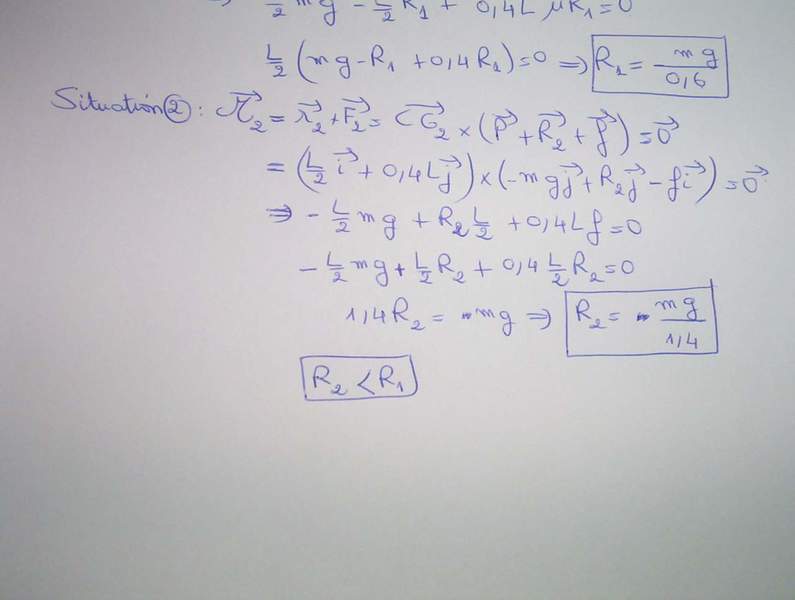 ⇒ L/2 mg - L/2 R₁ + 0,4L μR₁ = 0
L/2 (mg - R₁ + 0,4R₁) = 0 ⇒ R₁ = mg/0,6
Situation②: 𝓜⃗₂ = π⃗₂ + F⃗₂ = CG⃗₂ × (P⃗ + R⃗₂ + f⃗) = 0⃗
= (L/2 i⃗ + 0,4L j⃗) × (-mg j⃗ + R₂ j⃗ - f i⃗) = 0⃗
⇒ - L/2 mg + R₂ L/2 + 0,4L f = 0
- L/2 mg + L/2 R₂ + 0,4 L/2 R₂ = 0
1,4R₂ = mg ⇒ R₂ = mg/1,4
R₂ < R₁